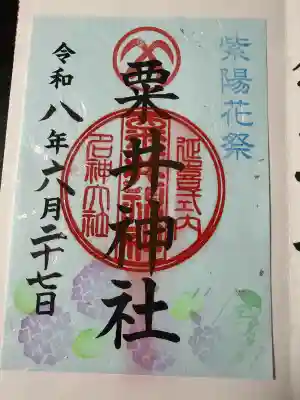 紫陽花祭
粟井神社
延喜式内
名神大社
令和八年六月二十七日